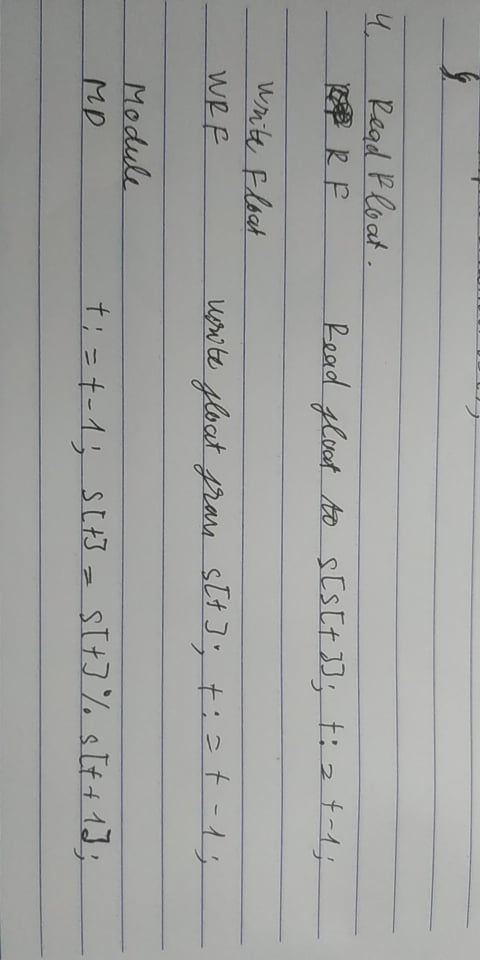 4. Read Float.
RF Read float to s[s[t]]; t:=t-1;
Write Float
WRF Write float from s[t]; t:=t-1;
Module
MD t:=t-1; s[t]=s[t]% s[t+1];